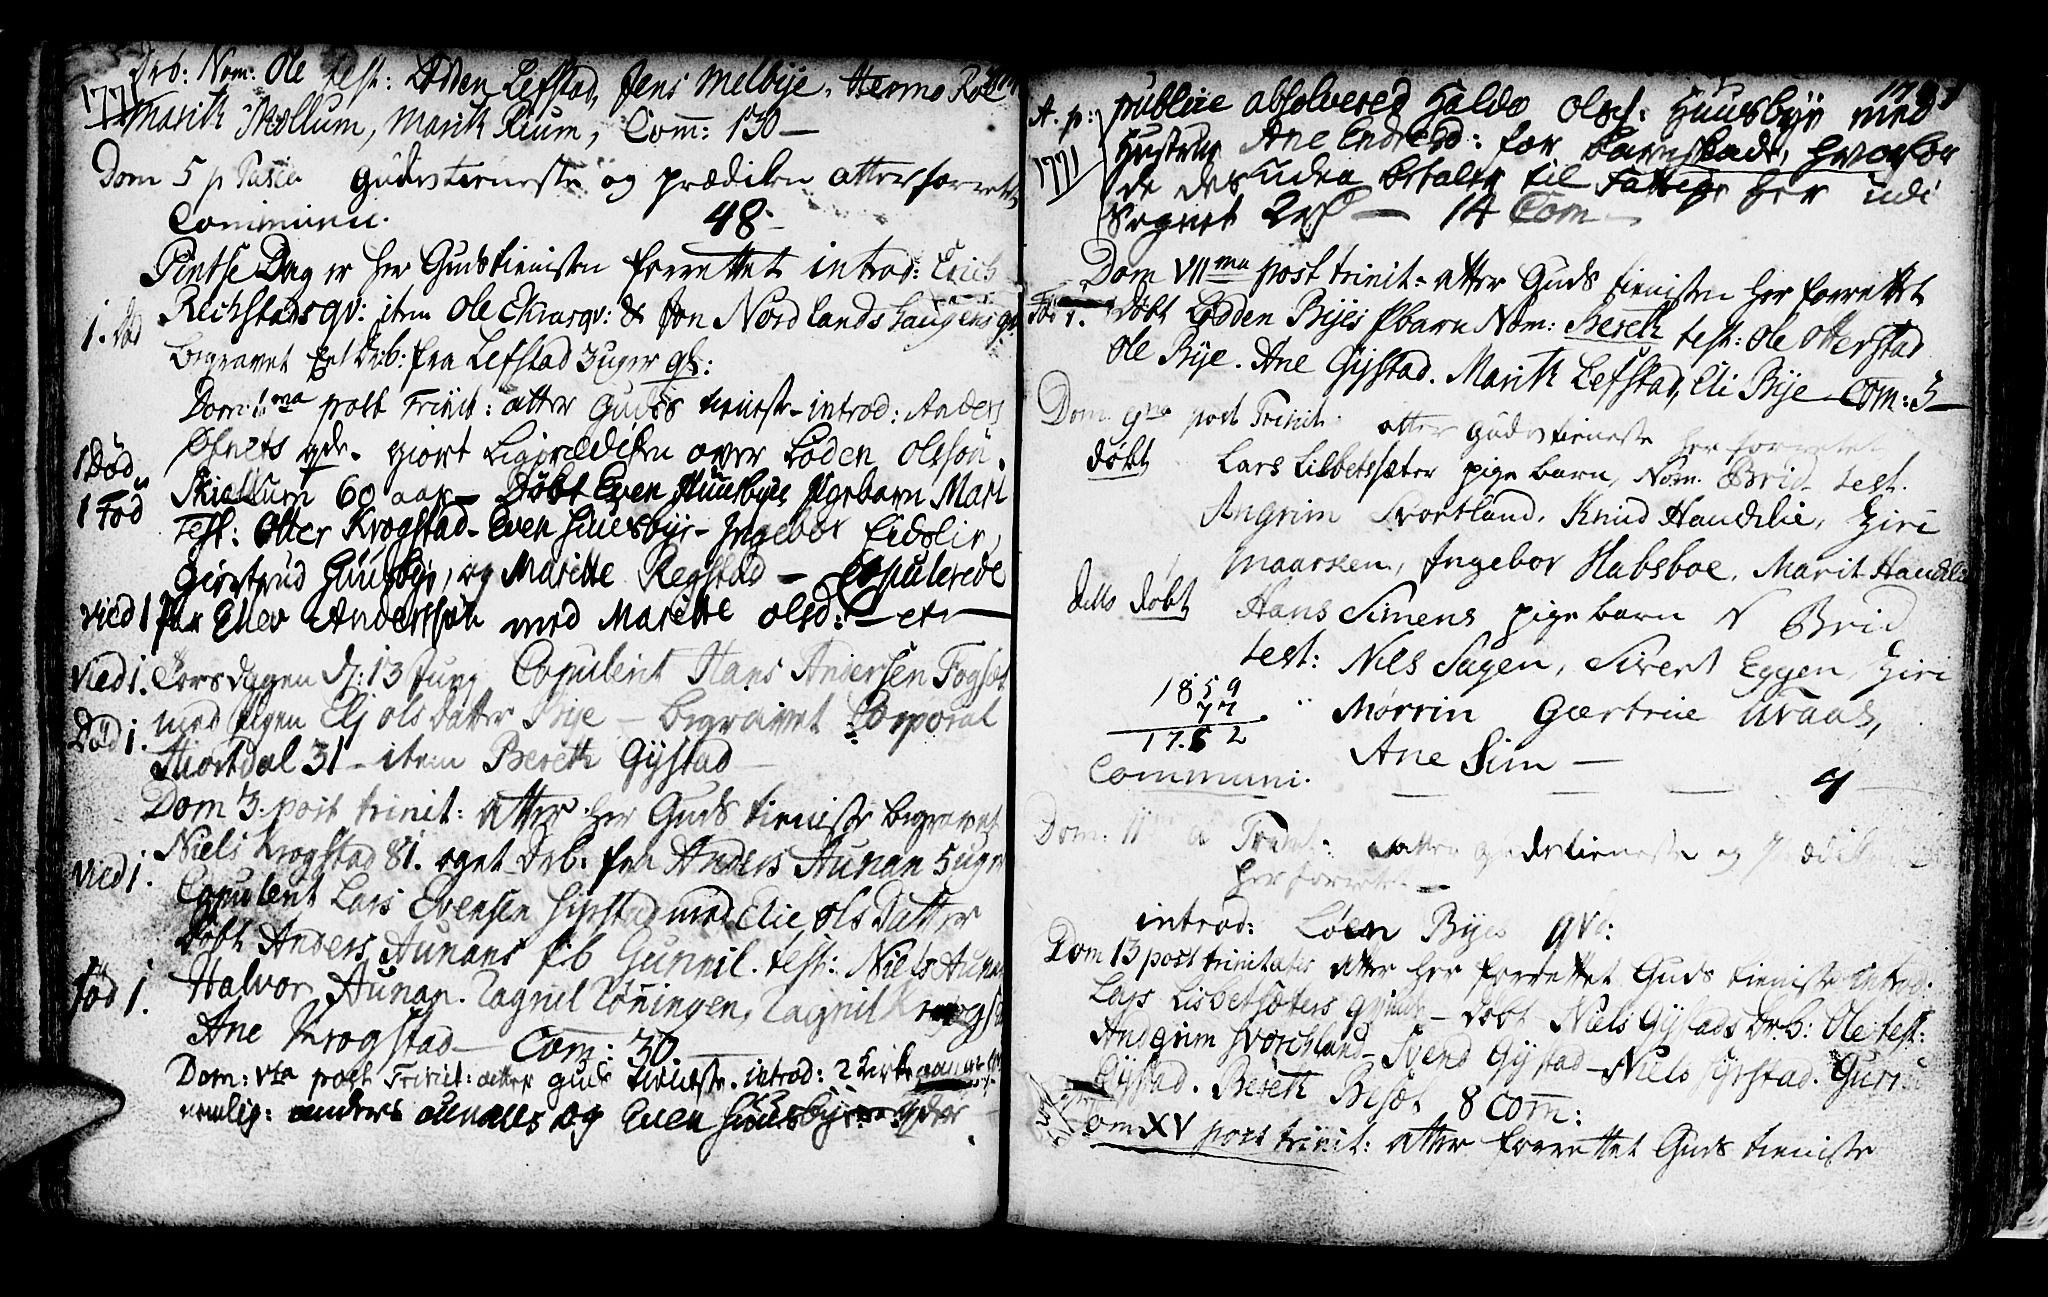 1771
Drb: Nom: Ole test: Odden Lefstad, Jens Melbye, Hermo
Marith Mellum, Marith Rium, Com: 130 —
Dom 5 p Pasca Gudestieneste og prædiken atter forrettet
Communic. 48 -
Pintse Dag er her Gudstienisten forrettet introd: Erich
Reithstads qv: item Ole Ekrasqv: & Jon Nordlandshaugens qv
1. død
begravet Drb: fra Lefstad 3 uger gl:
Dom: 1ma post Trinit: atter Guds tieneste introd: Anders
1 Død
qde. giort Ligprædiken over Loden Olssøn
1 Fød
Skiøllum 60 aar — Døbt Even Huusbyes Pigebarn Mari
Test: Otter Krogstad - Even Huusbye - Ingebor Eidslie,
Giertrud Huusbye, og Maritte Regstad — Copulerede
vied 1 Par Ellev Andersøn med Maritte Olsd: —
vied 1. Torsdagen d: 13 Juny Copulent Hans Andersen Fogset
med Pigen Elj Olsdatter Bye — begravet Corporal
Død 1.
Hiortdal 31 - item Bereth Gystad —
Dom 3. post trinit: atter her Guds tieniste begravet
Niels Krogstad 81. Drb: fra Anders Aunan 5 uger
vied 1.
Copulent Lars Evensen Gystad med Elie Ols Datter
Døbt Anders Aunans Pb Gunnil. test: Niels Aunan
Fød 1.
Halvor Aunan. Ragnil Røningen, Ragnil Krogstad
Ane Krogstad — Com: 30 —
Dom: vta post Trinit: atter guds tieneste. introd: 2 Kirke
nemlig: anders aunans og Even Huusbyes qder

A. p:
1771
publice absolvered Halde Olss: Huusbye med
Hustrue Ane Endresd: for
de desuden betalte til Fattige her udi
Sognet 2 — 14 Com —
Dom VIIma post trinit: atter Guds tienisten her forrettet
Fød 1. Døbt Lodden Byes Pbarn Nom: Bereth test: Ole Otterstad
Ole Bye. Ane Gystad. Marith Lefstad, Eli Bye. Com: 3 —
Dom. 9na post Trinit: atter gudestieneste her forrettet
døbt Lars Lisbetsæter pige barn, Nom. Brid test.
Angrim Svortland. Knud Haudlie, Ziri
Maarken, Ingebor Habsboe. Marit Haudlie
dito døbt Hans Simens pige barn N Brid
test: Nils Sagen, Sivert Eggen, Ziri
1859
77
1782
Mørrin Gærtrue Uvaas,
Ane Sim —
Communi. — — — 9
Dom. 11 Trinit: atter gudstieneste og prædiken
her forrettet —
introd: Loen Byes qvo:
Dom 13 post trinitatis atter her forrettet Guds tieniste introd:
Lars Lisbetsæters — døbt Niels Gystads Drb: Ole test:
Andgrim Svorchland - Svend Gystad - Niels Gystad. Guru
Gystad. Bereth 8 Com:
Dom XV post trinit: atter forrettet Guds tieniste